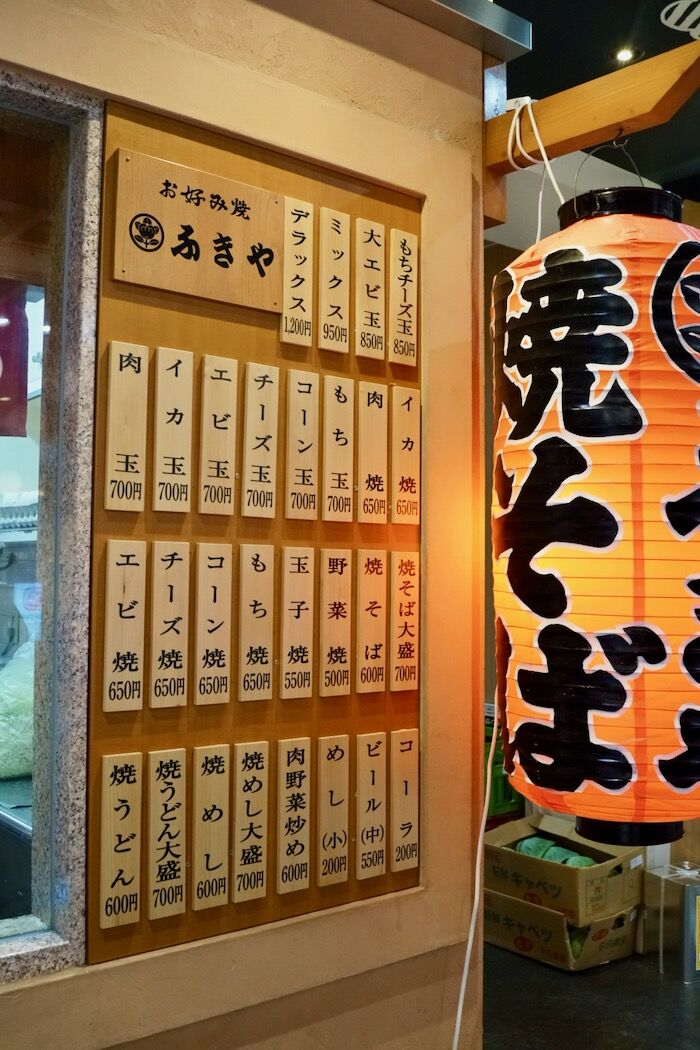 お好み焼
ふきや
デラックス 1,200円
ミックス 950円
大エビ玉 850円
もちチーズ玉 850円
肉玉 700円
イカ玉 700円
エビ玉 700円
チーズ玉 700円
コーン玉 700円
もち玉 700円
肉焼 650円
イカ焼 650円
エビ焼 650円
チーズ焼 650円
コーン焼 650円
もち焼 650円
玉子焼 550円
野菜焼 500円
焼そば 600円
焼そば大盛 700円
焼うどん 600円
焼うどん大盛 700円
焼めし 600円
焼めし大盛 700円
肉野菜炒め 600円
めし(小) 200円
ビール(中) 550円
コーラ 200円
焼そば
キャベツ
キャベツ